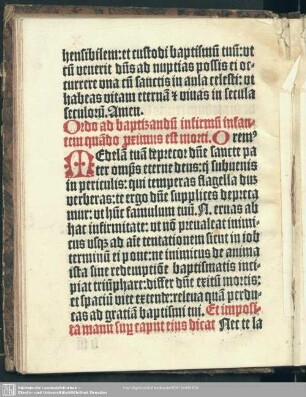 hensibilem: et custodi baptismũ tuũ: vt
cũ venerit dñs ad nuptias possis ei oc-
currere vna cũ sanctis in aula celesti: vt
habeas vitam eternã & viuas in secula
seculorũ. Amen.
Ordo ad baptizandũ infirmũ infan-
tem quãdo proximus est morti. Orem⁹
Medelã tuã deprecor dñe sancte pa
ter omĩps eterne deus: q̃ subuenis
in periculis: qui temperas flagella dũ
verberas: te ergo dñe supplices depreca
mur: vt hũc famulum tuũ. N. eruas ab
hac infirmitate: vt nõ preualeat inimi
cus vsq̃ ad aĩe tentationem sicut in iob
terminũ ei pone: ne inimicus de anima
ista sine redemptiõe baptismatis inci
piat triũphare: differ dñe exitũ mortis:
et spaciũ vite extende: releua quã perdu
cas ad gratiã baptismi tui. Et imposi-
ta manu sup̃ caput eius dicat Nec te la